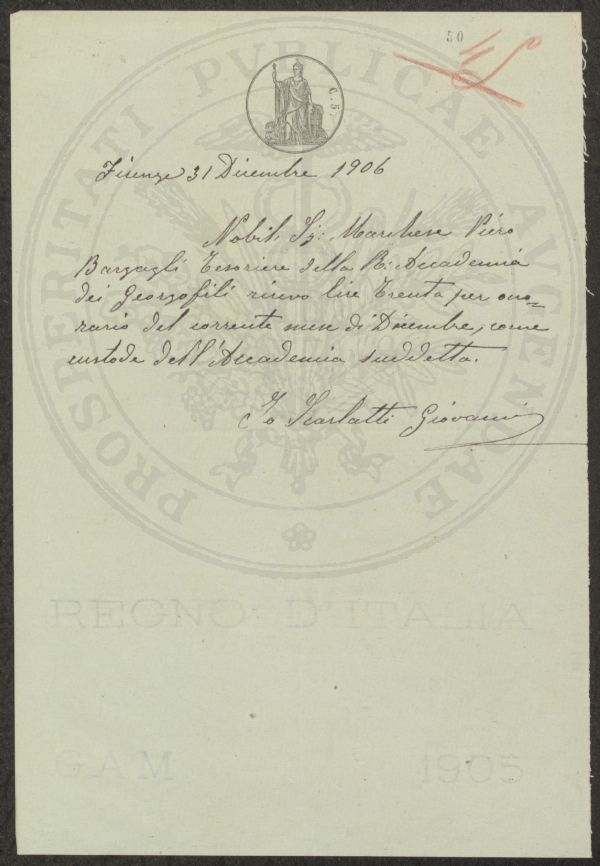 50
C. 5.
Firenze 31 Dicembre 1906
Nobil. Sig: Marchese Piero
Bargagli Tesoriere della R: Accademia
dei Georgofili ricevo lire Trenta per ono=
rario del corrente mese di Dicembre, come
custode dell'Accademia suddetta.
Io Scarlatti Giovanni
PROSPERITATI PVBLICAE AVGENDAE
REGNO D'ITALIA
GAM 1905